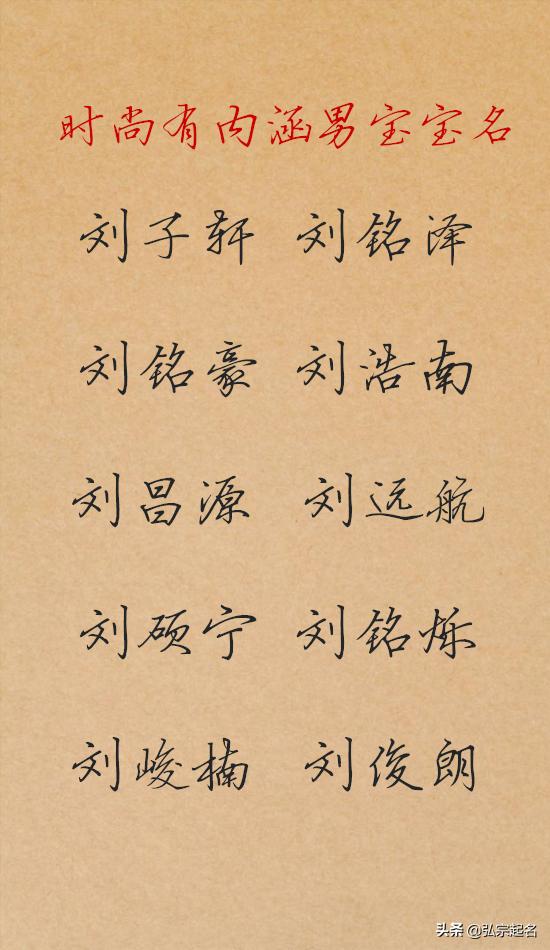 时尚有内涵男宝宝名
刘子轩 刘铭泽
刘铭豪 刘浩南
刘昌源 刘远航
刘硕宁 刘铭烁
刘峻楠 刘俊朗
头条 @弘宗起名